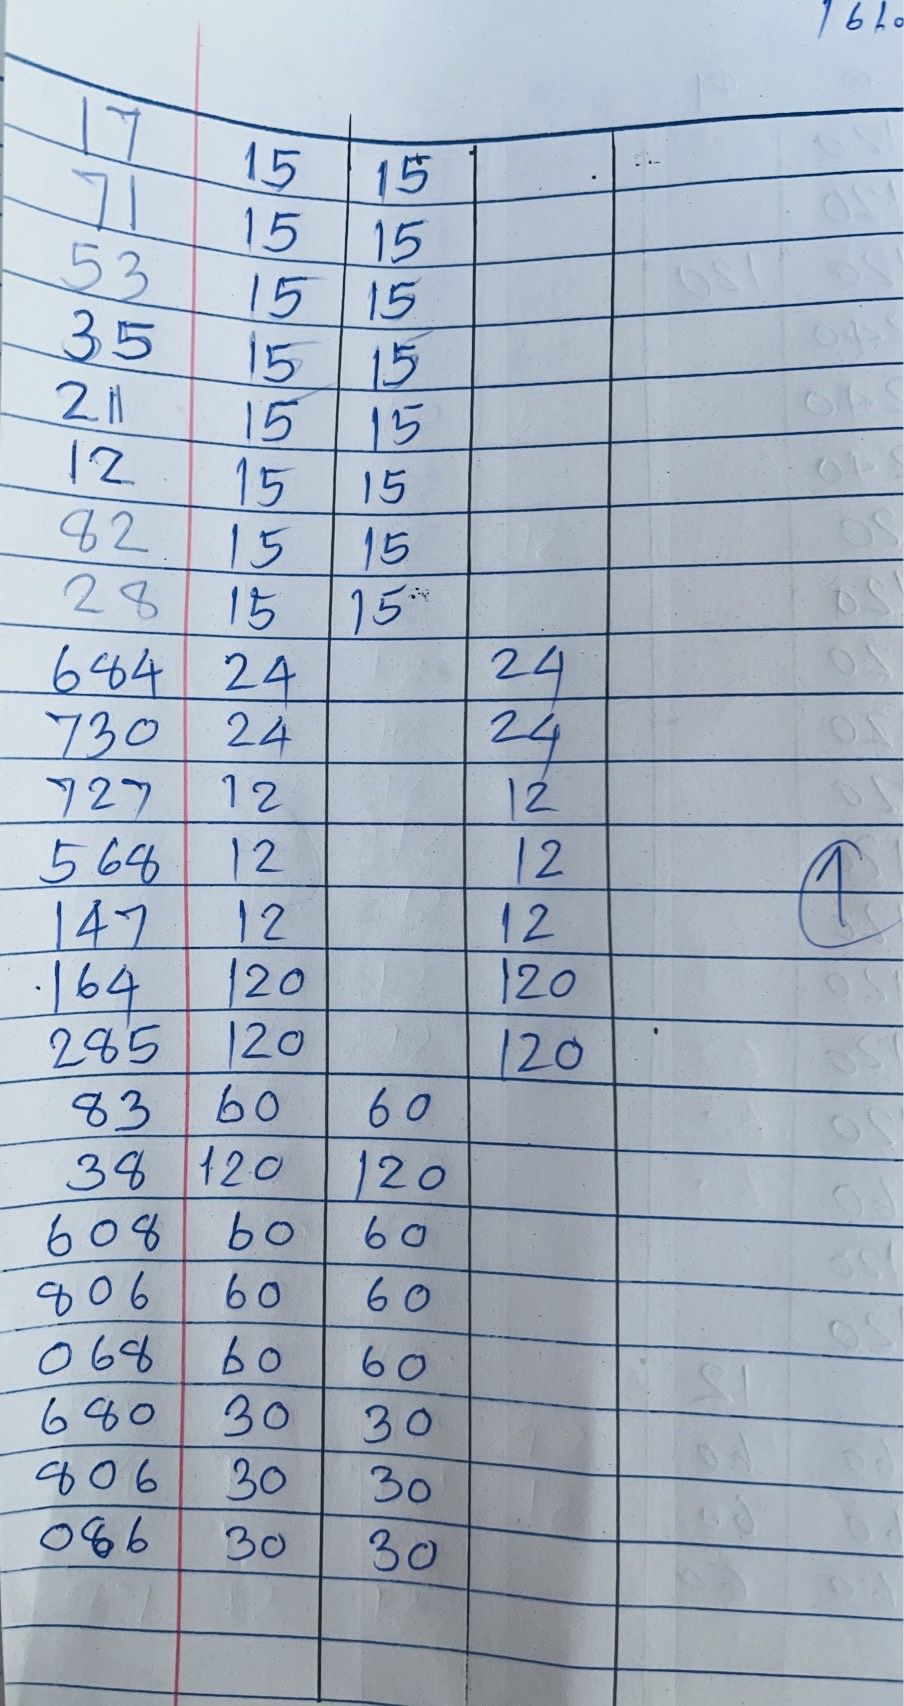 17 15 15
71 15 15
53 15 15
35 15 15
21 15 15
12 15 15
82 15 15
28 15 15
684 24 24
730 24 24
727 12 12
568 12 12
147 12 12
164 120 120
285 120 120
83 60 60
38 120 120
608 60 60
806 60 60
068 60 60
680 30 30
806 30 30
086 30 30